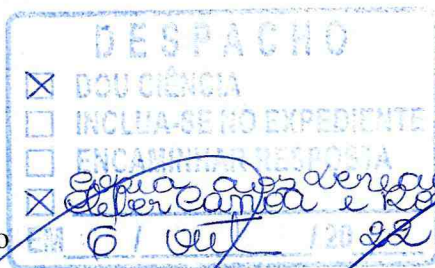 DESPACHO
DOU CIÊNCIA
INCLUA-SE NO EXPEDIENTE
ENCAMINHAR RESPOSTA
Cópia aos
Cleber Canoa e
o
EM 6 / out / 20 22